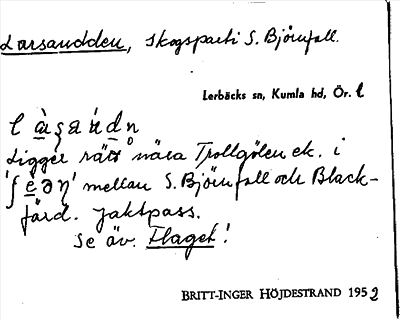 Larsaudden, skogsparti S. Björnfall.
Lerbäcks sn, Kumla hd, Ör. l
Ligger rätt nära Trollgölen ek. i
mellan S. Björnfall och Black-
färd. Jaktpass.
Se äv. Flaget!
BRITT-INGER HÖJDESTRAND 1952